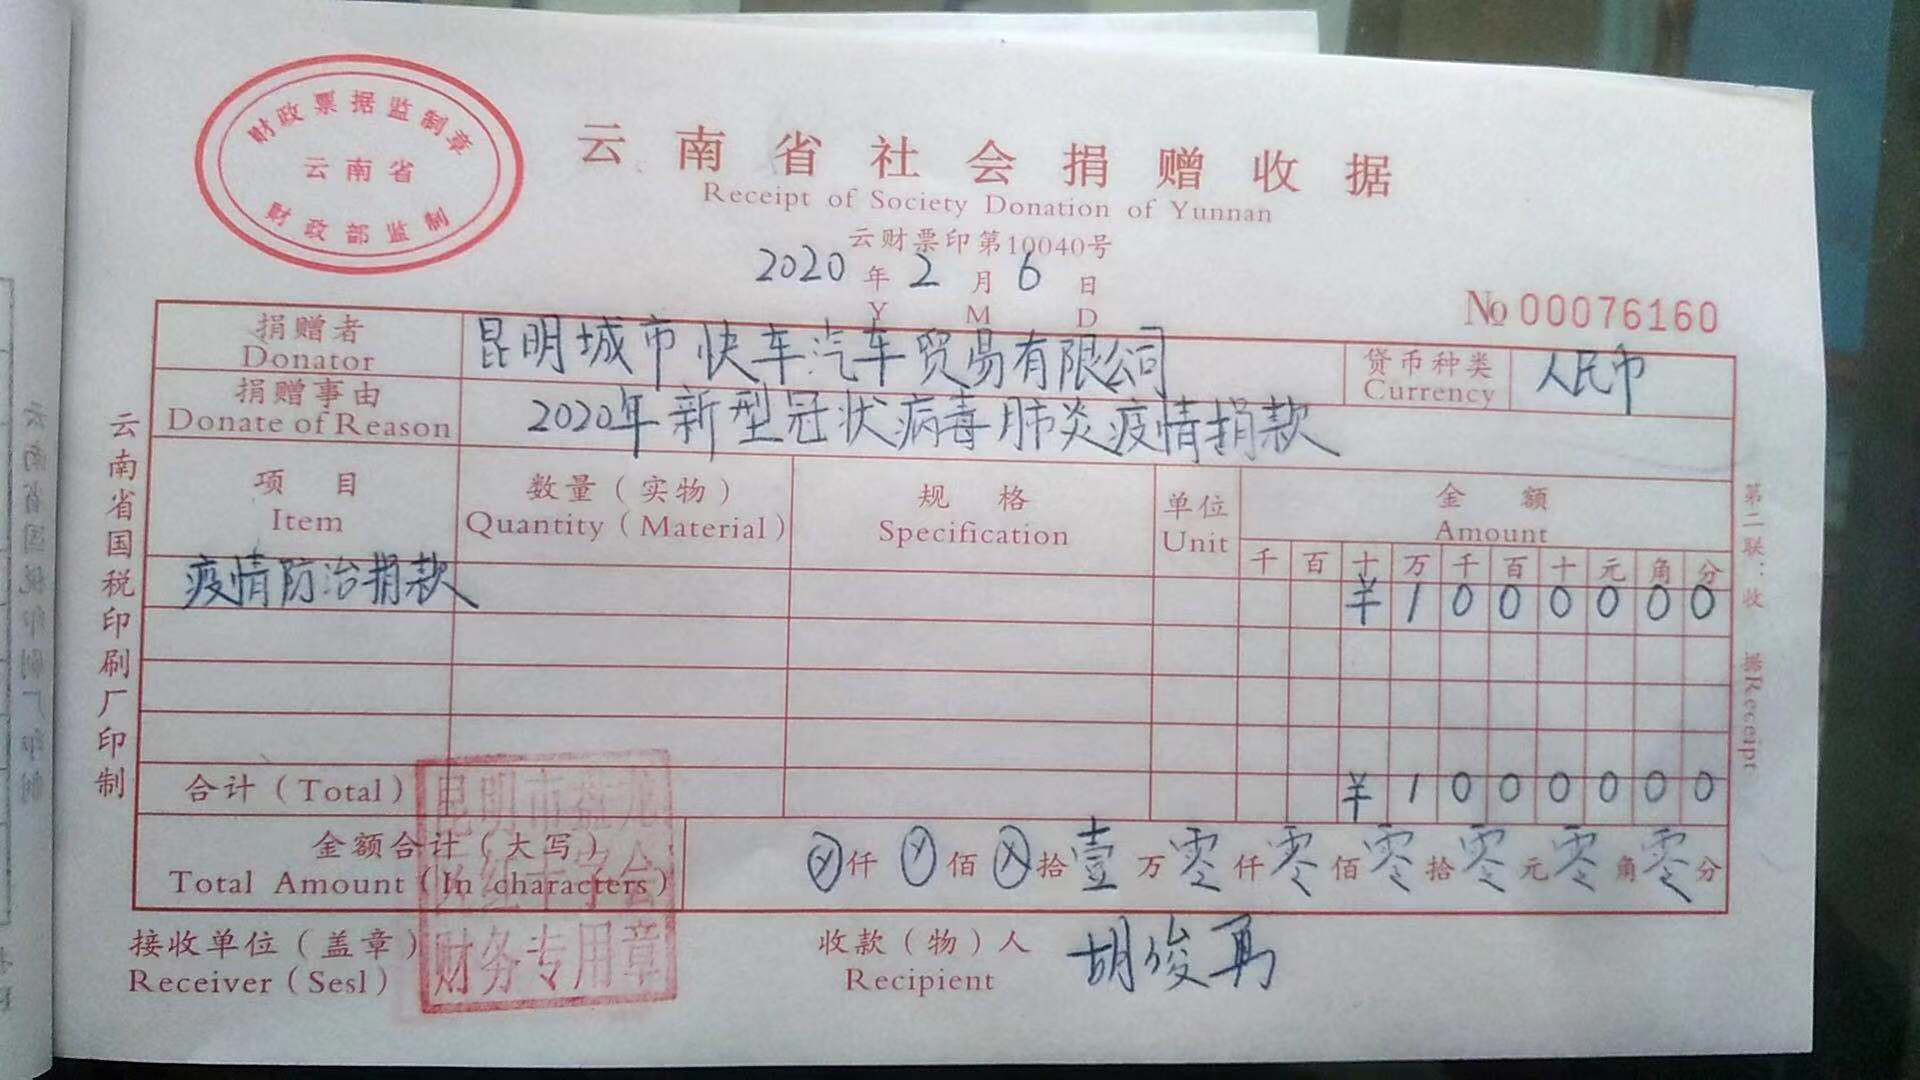 财政票据监制章
云南省
财政部监制
云南省社会捐赠收据
Receipt of Society Donation of Yunnan
云财票印第10040号
2020年2月6日
Y M D
№ 00076160
捐赠者 昆明城市快车汽车贸易有限公司 货币种类 人民币
Donator Currency
捐赠事由 2020年新型冠状病毒肺炎疫情捐款
Donate of Reason
项目 数量（实物） 规格 单位 金额
Item Quantity（Material） Specification Unit Amount
千 百 十 万 千 百 十 元 角 分
疫情防治捐款 ¥ 1 0 0 0 0 0 0
合计（Total） ¥ 1 0 0 0 0 0 0
金额合计（大写） ⓧ仟ⓧ佰ⓧ拾壹万零仟零佰零拾零元零角零分
Total Amount（In characters）
昆明市盘龙
区红十字会
财务专用章
接收单位（盖章） 收款（物）人
Receiver（Sesl） Recipient
云南省国税印刷厂印制
第二联：收据Receipt